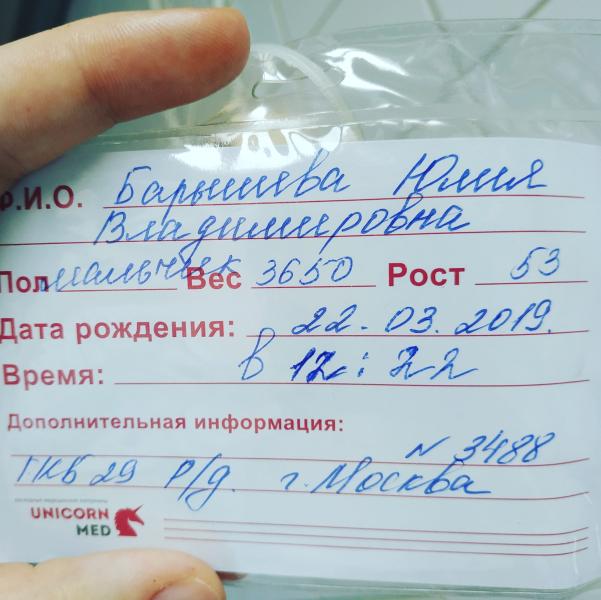 Ф.И.О. Барышева Юлия
Владимировна
Пол мальчик Вес 3650 Рост 53
Дата рождения: 22.03.2019.
Время: в 12:22
Дополнительная информация:
N 3488
ГКБ 29 Р/д. г. Москва
UNICORN
MED